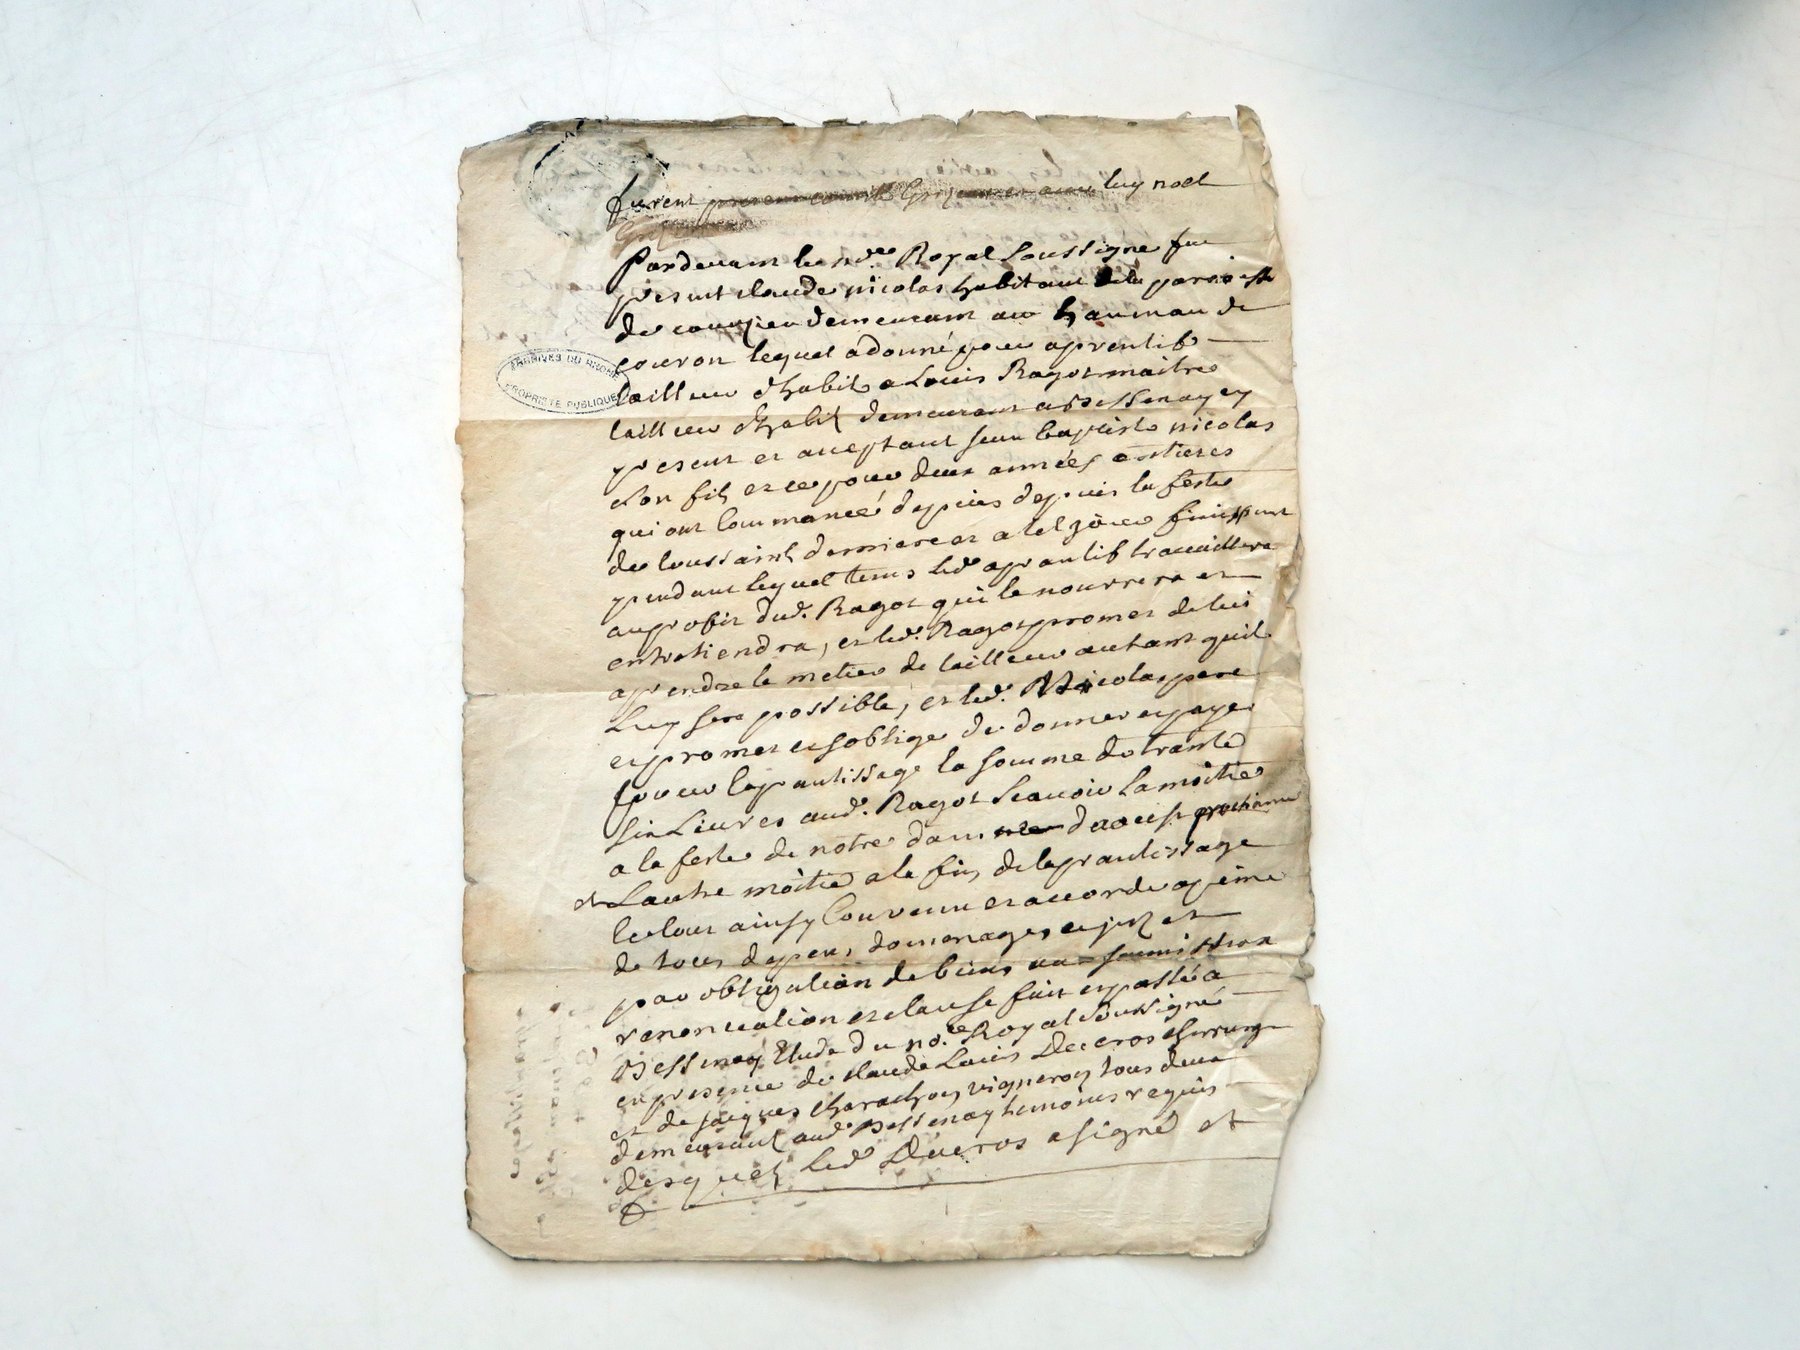 furent luy noel
Pardevant le no.re Royal soussigné fut
present claude nicolas habitant de la paroisse
de courzieu demeurant au hammau de
couron lequel a donné pour aprentif
ARCHIVES DU RHONE
PROPRIETE PUBLIQUE
tailleur dhabit a Louis Ragot maitre
tailleur dhabit demeurant a Bessenay cy
present et aceptant jean baptiste nicolas
son fils et ce pour deux années entieres
qui ont commancé depuis depuis la feste
de toussaint derniere et a tel jour finissant
pendant lequel tems led. aprantif travaillera
au profit dud. Ragot qui le nourrira et
entretiendra, et led. Ragot promet de lui
aprendre le metier de tailleur autant quil
luy sera possible, et led. Nicolas pere
et promet et soblige de donner et payer
pour laprantissage la somme de trante
six Livres aud. Ragot scavoir la moitié
a la feste de notre dame daoust prochaine
et Lautre moitié a la fin de laprantissage
le tout ainsy convenu et accordé a peine
de tous depens domages et jnt et
par obligation de biens soumission
renonciation et clause fait et passé a
Bessenay Etude du no.re Royal soussigné
en presence de claude Louis Ducros chirurg
et de jacques charachon vigneron tous deux
demeurant aud. Bessenay temoins requis
desquels led. Ducros a signé et